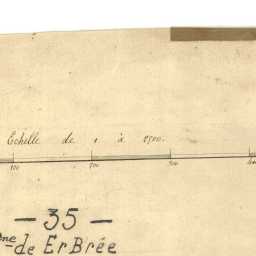 Echelle de 1 à 2500.
100 200 300
— 35 —
de ErBrée